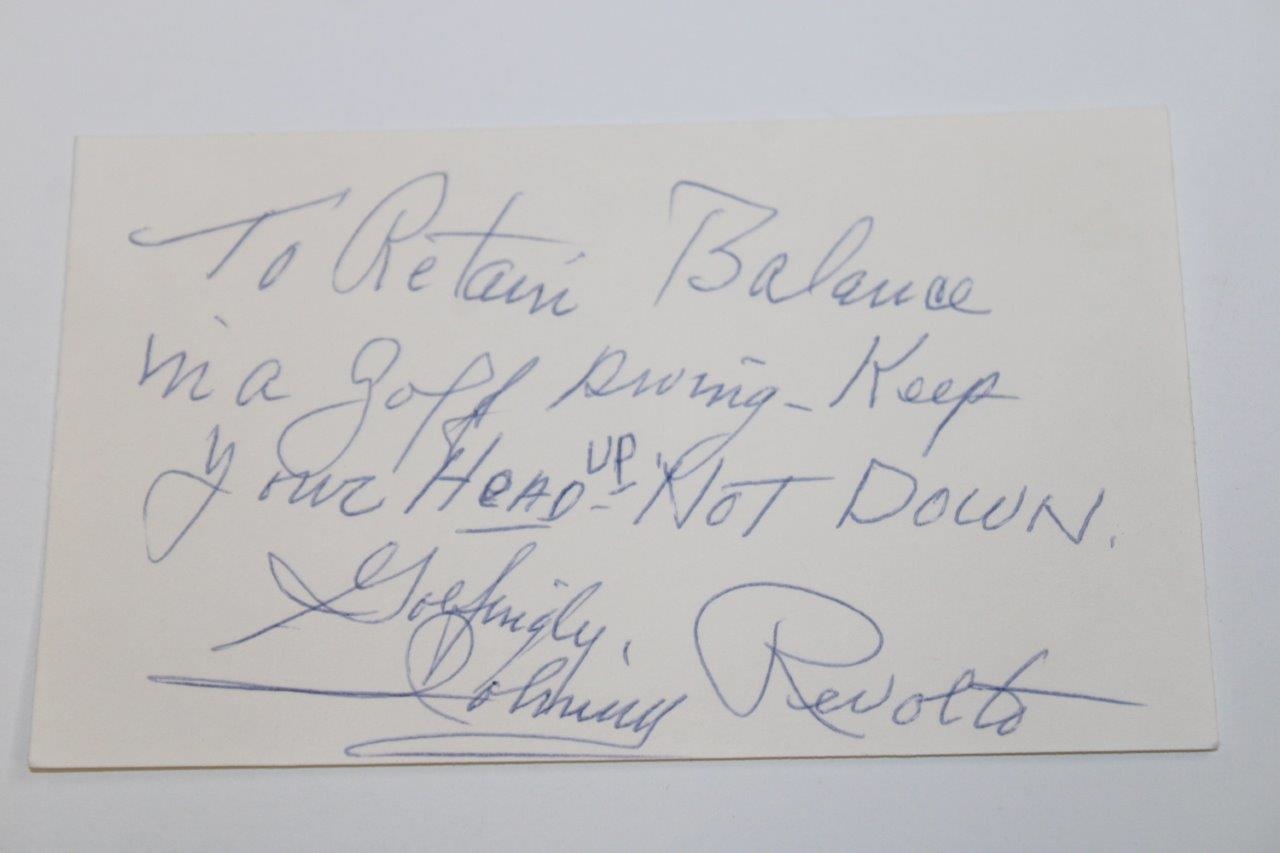 To Retain Balance
in a golf swing - Keep
your HeAD UP - NOT DOWN.
Golfingly,
Johnny Revolta